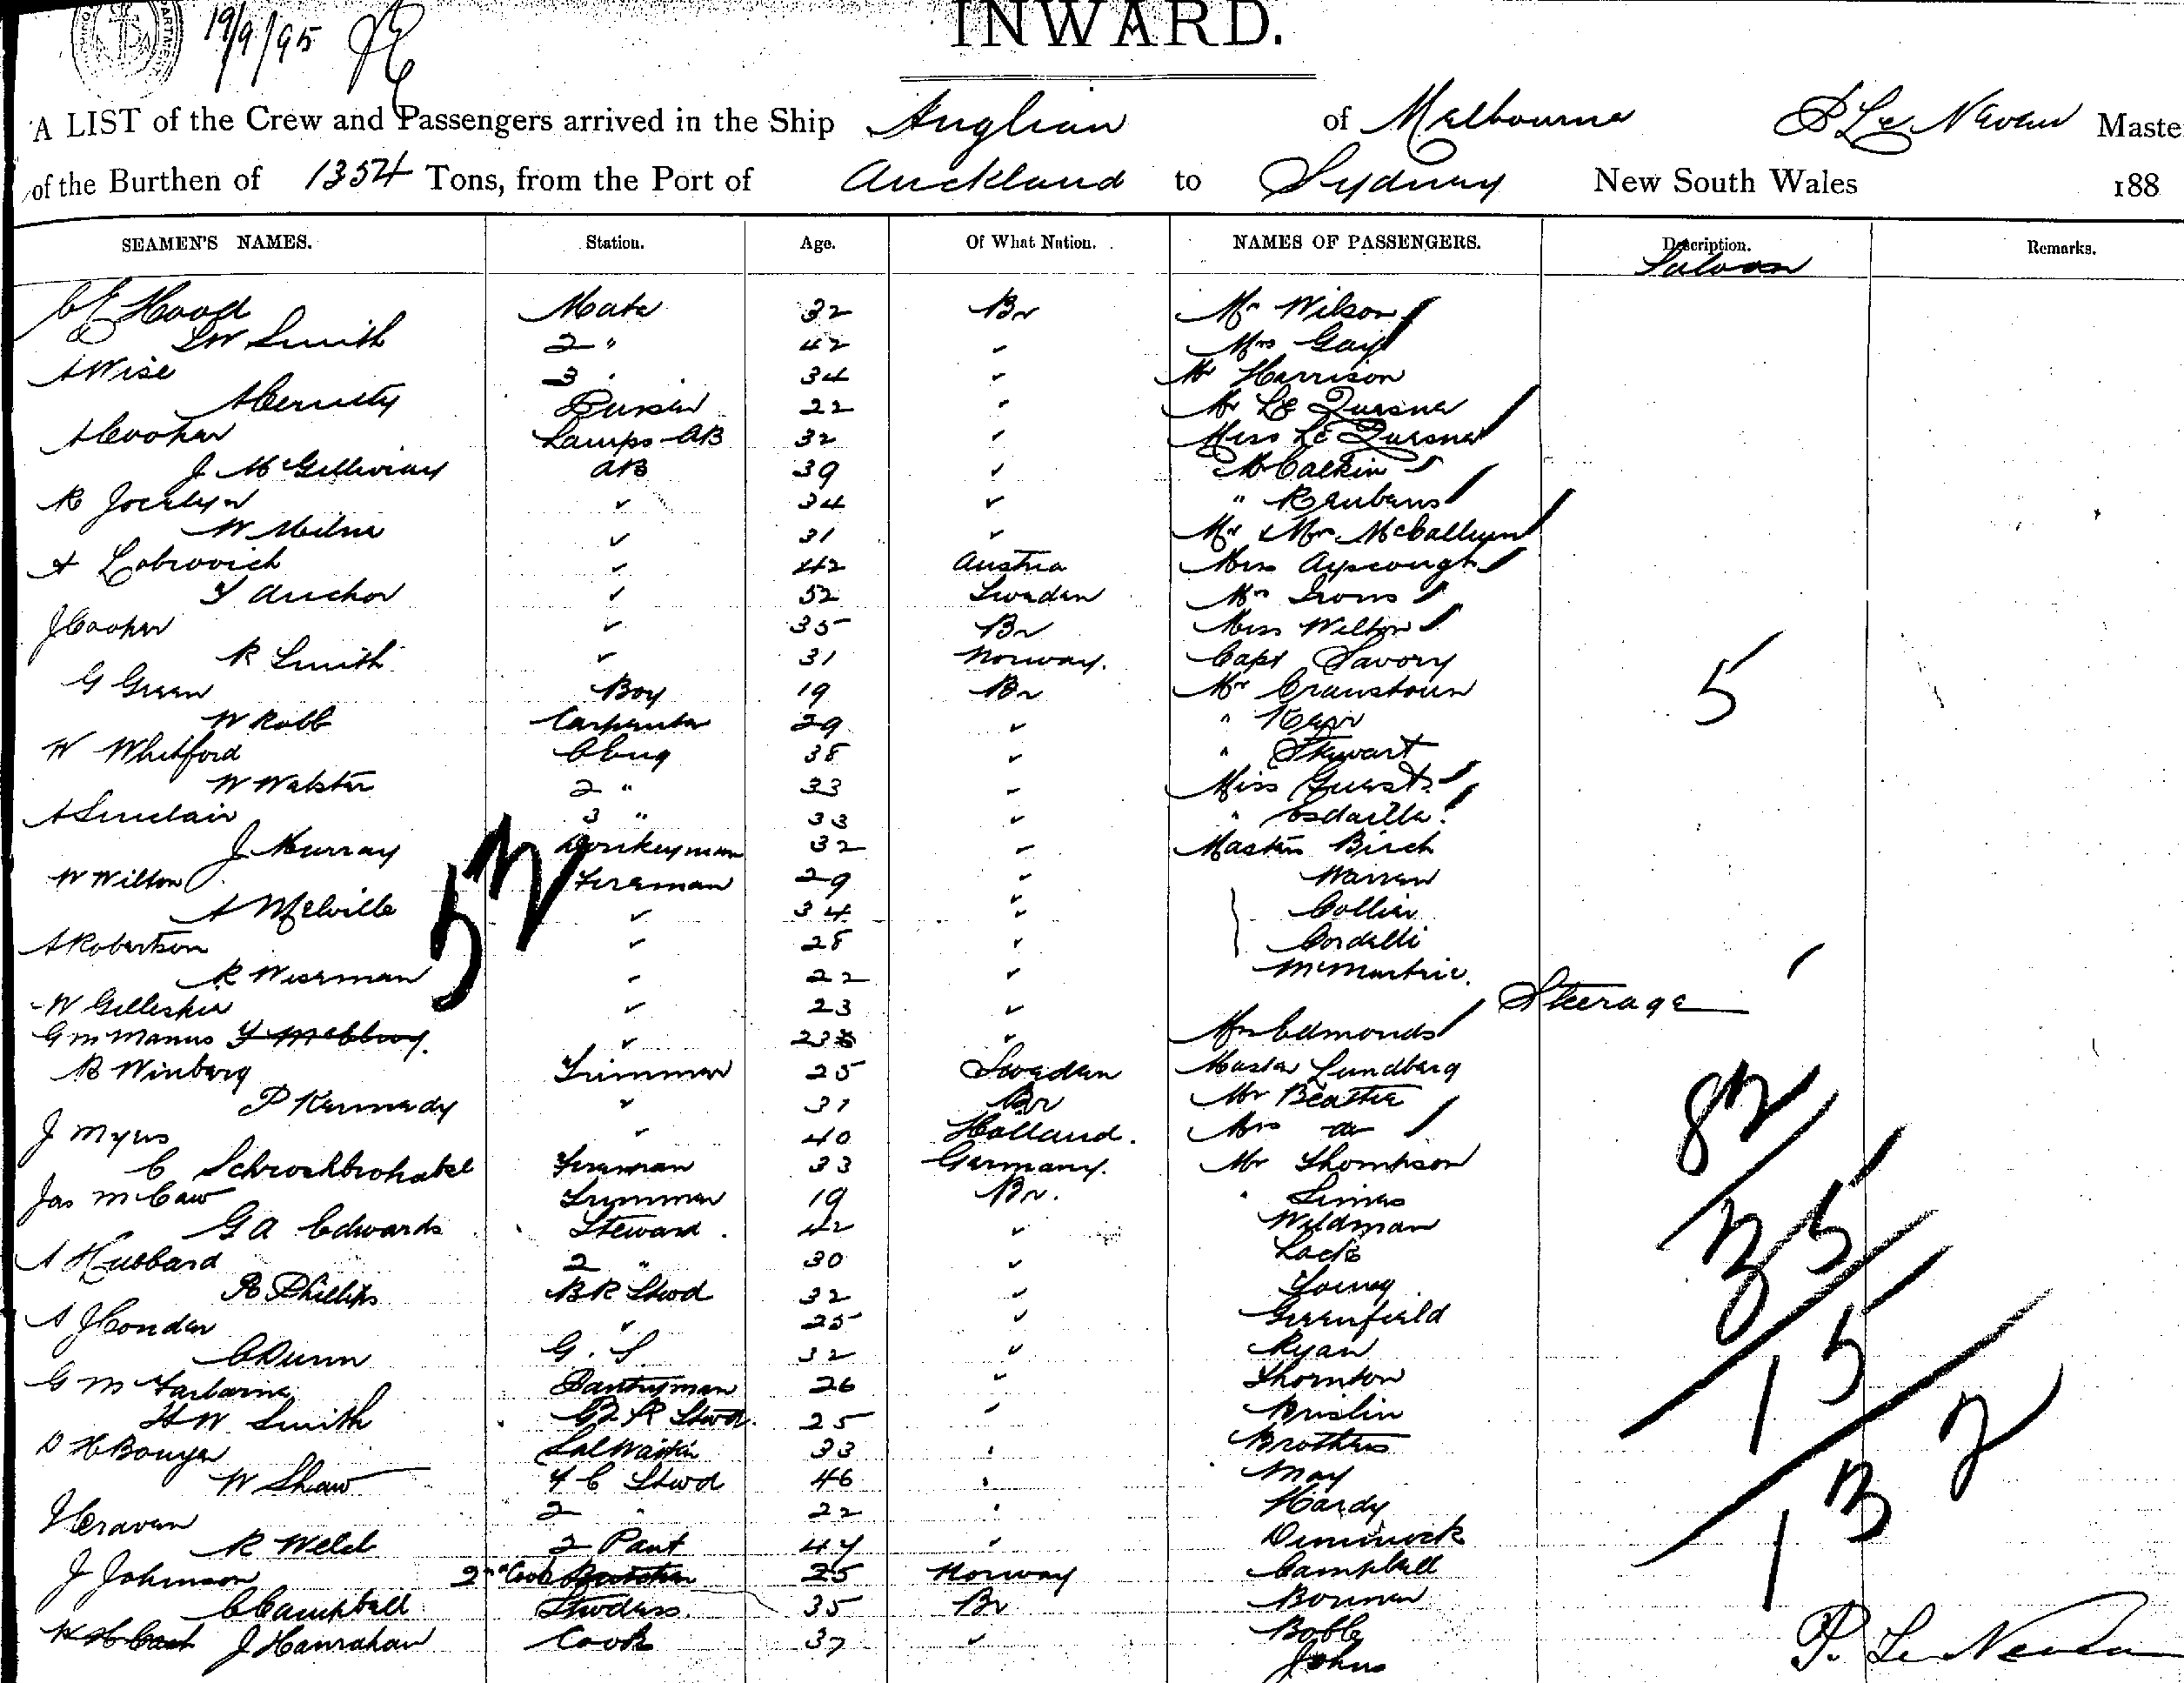 19/9/95
INWARD.
A LIST of the Crew and Passengers arrived in the Ship Anglian of Melbourne P Le Neveu Maste
of the Burthen of 1354 Tons, from the Port of Auckland to Sydney New South Wales 188
SEAMEN'S NAMES. Station. Age. Of What Nation. NAMES OF PASSENGERS. Description. Remarks.
Saloon
Hood Mate 32 Br Mr Wilson
Smith 2 " 42 Mrs Gay
A Wise 3 34 Mr Harrison
Purser 22 Mr Le Quesne
A Cooper Lamps AB 32 Miss Le Quesne
J McGillivray AB 39 Calkin
R Jocelyn 34 " Reubens
W Milne 31 Mr & Mrs McCallum
A Lobrovich 42 Austria Miss Ayscough
Anchor 52 Sweden Mrs Irons
J Cooper 35 Br Miss Wilton
R Smith 31 Norway. Capt Savory
G Green Boy 19 Br Mr Cranstoun
W Robb Carpenter 29 " Kerr
W Whitford C Eng 38 " Stewart
W Walster 2 " 33 Miss Guest
A Sinclair 3 " 33 "
J Murray Donkeyman 32 Masters Birch
W Wilton Fireman 29 Warren
A Melville 34 Collier
A Robertson 28 Cordelli
R Wiseman 22
W Gillespie 23 Steerage
G McManus 23 Mrs Edmonds
B Winberg Trimmer 25 Sweden Master Lundberg
P Kennedy 31 Br Mr Beattie
J Myers 40 Holland. Mrs do
C Fireman 33 Germany. Mr Thompson
Jas McCaw Trimmer 19 Br. Simes
G A Edwards Steward 42 Wildman
A Hubbard 2 " 30 Lack
Phillips BR Stwd 32 Young
A J Conder 25 Greenfield
C Dunn G. S. 32 Ryan
G McFarlane Pantryman 26 Thornton
H W Smith Stwd. 25 Brislin
D H Bouyer Sal Waiter 33 Brothers
W Shaw F C Stwd 46 May
J Craven 2 " 22 Hardy
R Weld 2 Pant 44 Dimmock
J Johnson 2nd Cook 25 Norway Campbell
C Campbell Stwdess. 35 Br Bonner
J Hanrahan Cook 37 Boble
Johns
52
5
82
35
15
132
P. Le Neveu